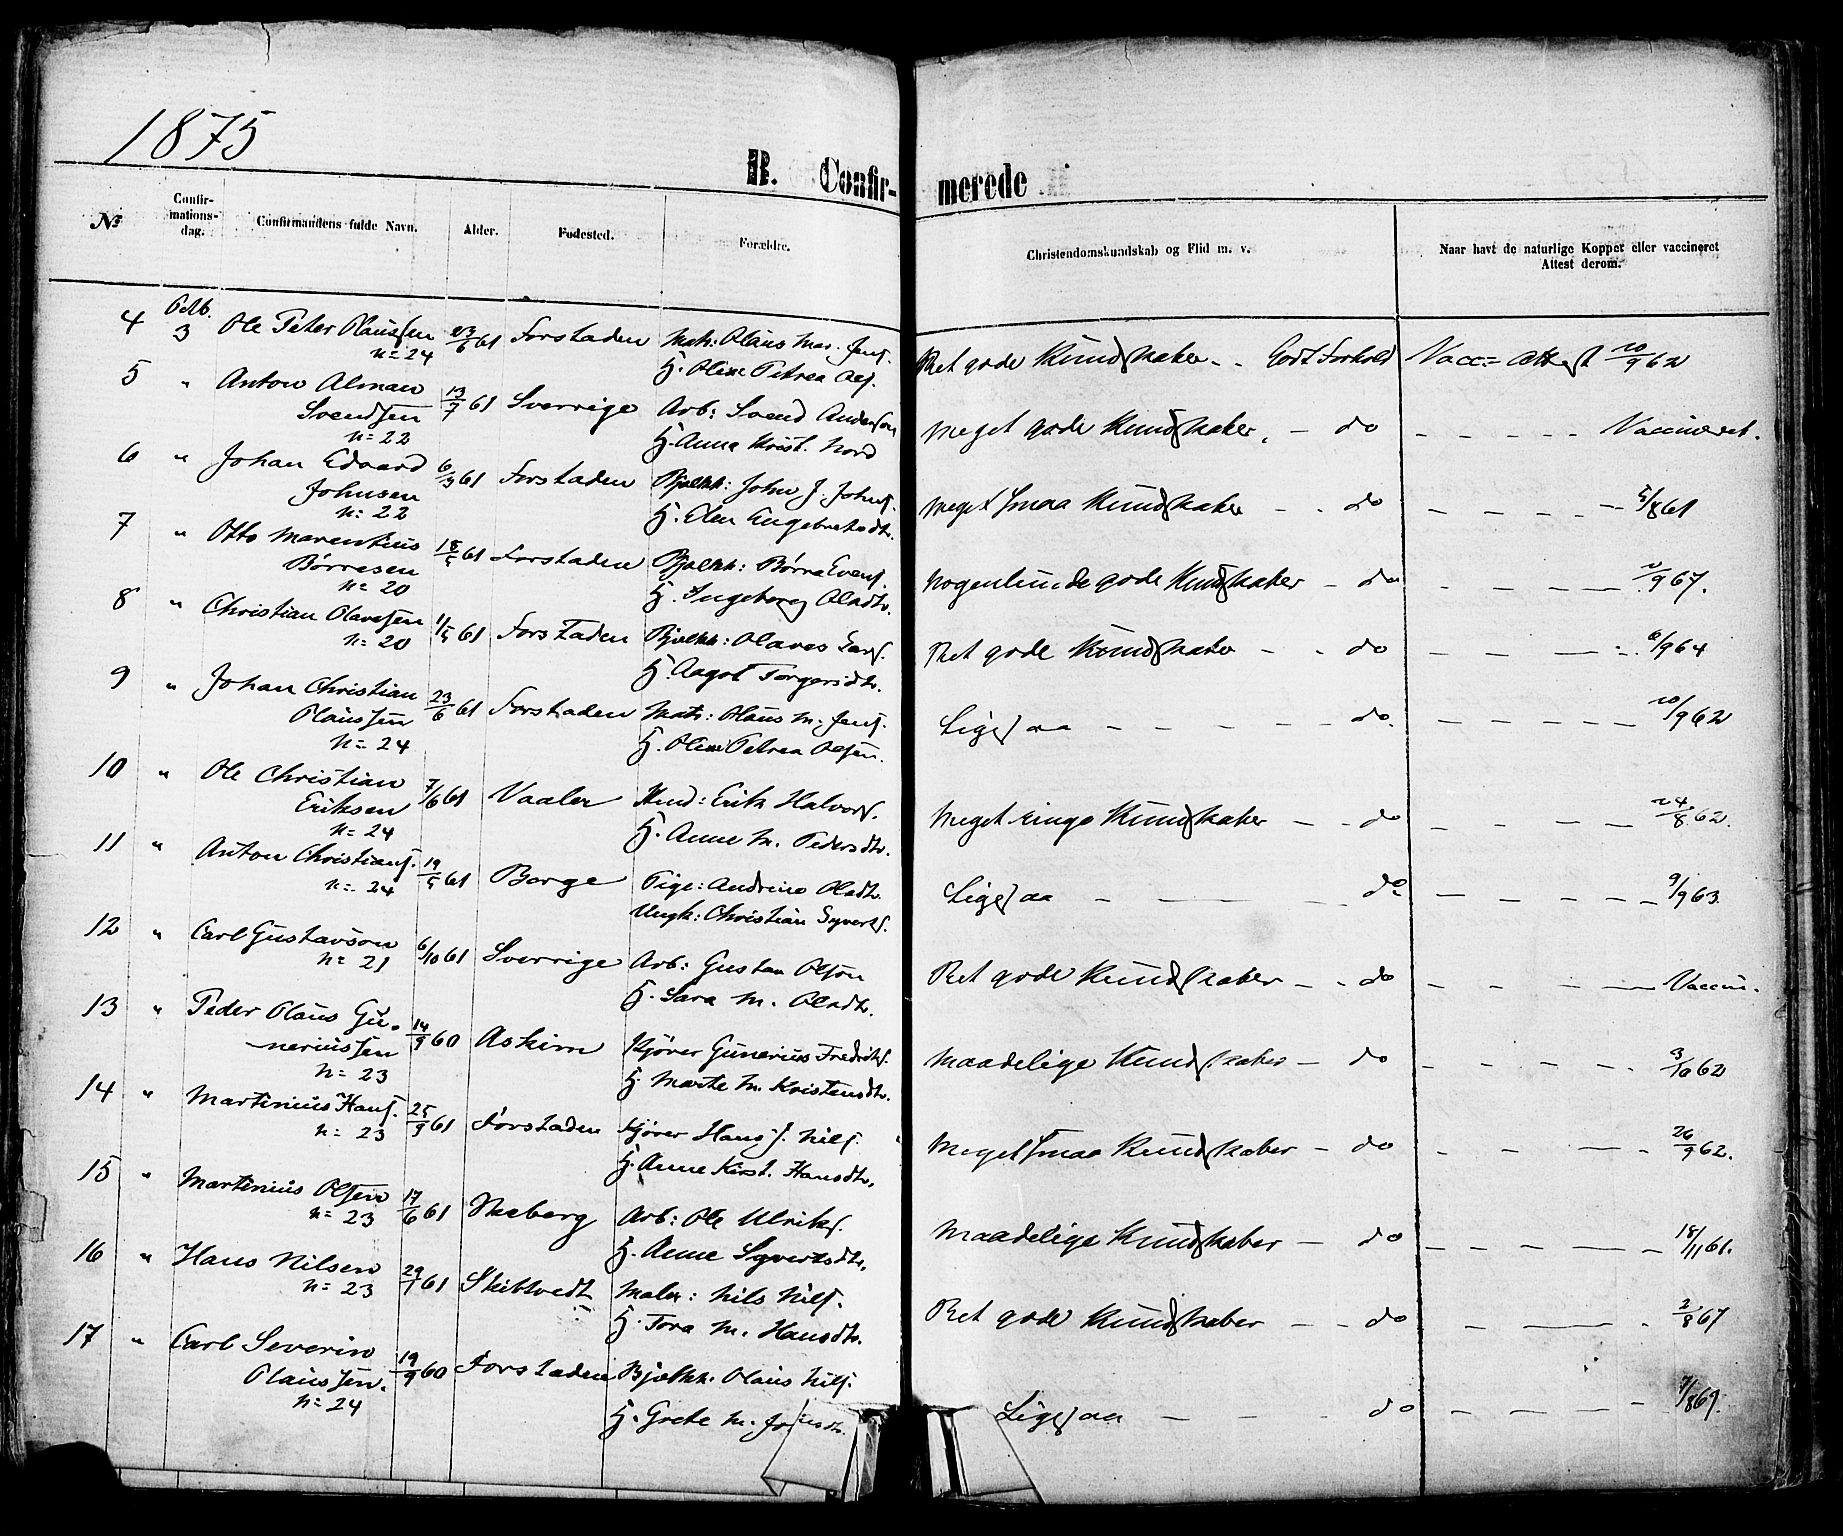 1875
B. Confir-
merede
№
Confir-
mations-
dag.
Confirmandens fulde Navn.
Alder.
Fødested.
Forældre.
Christendomskundskab og Flid m. v.
Naar havt de naturlige Kopper eller vaccineret
Attest derom.
4 Octb. 3 Ole Peter Olaussen 23/6 61 Forstaden Matr: Olaus Mar. Jens. Ret gode Kundskaber - - Godt Forhold Vacc= Attest 10/9 62
n= 24 H. Oline Petrea Ols.
5 " Anton Alman 13/7 61 Sverrige Arb: Svend Anderson Meget gode Kundskaber. - do - - - - - Vaccineret.
Svendsen H. Anna Krist. Nord
n= 22
6 " Johan Edvard 6/3 61 Forstaden Bjælkh: John J. Johns. Meget smaa Kundskaber - - do - - - - - 5/8 61
Johnsen H. Elen Engebretsdtr.
n= 22
7 " Otto Marentius 18/5 61 Forstaden Bjælkh: Børre Evens. Nogenlunde gode Kundskaber - do - - - - 9 67.
Børresen H. Ingeborg Olsdtr.
n= 20
8 " Christian Olavesen 1/5 61 Forstaden Bjælkh: Olaves Lars. Ret gode Kundskaber - - do - - - - 6/9 64
n= 20 H. Aagot Torgersdtr.
9 " Johan Christian 23/6 61 Forstaden Matr: Olaus M. Jens. Ligesaa - - - - - do. - - - - - 10/9 62
Olaussen H. Oline Petrea Olsen.
n= 24
10 " Ole Christian 7/6 61 Vaaler Hud: Erik Halvors. Meget ringe Kundskaber - - do - - - - 24/8 62.
Eriksen H. Anne M. Pedersdtr.
n= 24
11 " Anton Christians. 19/5 61 Borge Pige: Andrine Olsdtr. Ligesaa - - - - do - - - - - 9/9 63.
n= 24 Ungk: Christian Syverts.
12 " Carl Gustavson 6/10 61 Sverrige Arb: Gustav Olson Ret gode Kundskaber - - do - - - - Vaccin.
n= 21 H. Sara M. Olsdtr.
13 " Peder Olaus Gu- 14/9 60 Askim Kjører Gunerius Fredriks. Maadelige Kundskaber - do - - - - - 3/10 62
neriussen H. Marte M. Kristensdtr.
n= 23
14 " Martinius Hans. 25/9 61 Forstaden Kjører Hans J. Nils. Meget smaa Kundskaber - do - - - - - 26/9 62.
n= 23 H. Anne Kirst. Hansdtr.
15 " Martinius Olsen 17/6 61 Skeberg Arb: Ole Ulriks. Maadelige Kundskaber - do - - - - - 18/11 61.
n= 23 H. Anne Syvertsdtr.
16 " Hans Nilsen 29/1 61 Skibtvedt Maler: Nils Nils. Ret gode Kundskaber - - do - - - - 2/8 67
n= 23 H. Tora M. Hansdtr.
17 " Carl Severin 19/9 60 Forstaden Bjælkh: Olaus Nils. Ligesaa - - - - do - - - - - 7/8 69.
Olaussen. H. Grete M. Johnsdtr.
n= 24